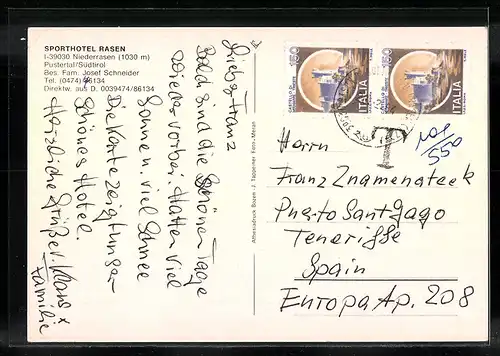 SPORTHOTEL RASEN
I-39030 Niederrasen (1030 m)
Pustertal/Südtirol
Bes. Fam. Josef Schneider
Tel. (0474) 86134
Direktw. aus D. 0039474/86134
Lieber Franz
Bald sind die Schönen Tage
wieder vorbei. Hatten viel
Sonne u. viel Schnee
Die Karte zeigt unser
schönes Hotel.
Herzliche Grüße v. Klaus +
Familie
Athesiadruck Bozen - J. Tappeiner Foto-Meran
150
CASTELLO DI
ITALIA
150
CASTELLO DI
ITALIA
T
550
Herrn
Franz Znamenateek
Puerto Santgago
Teneriffe
Spain
Europa Ap. 208